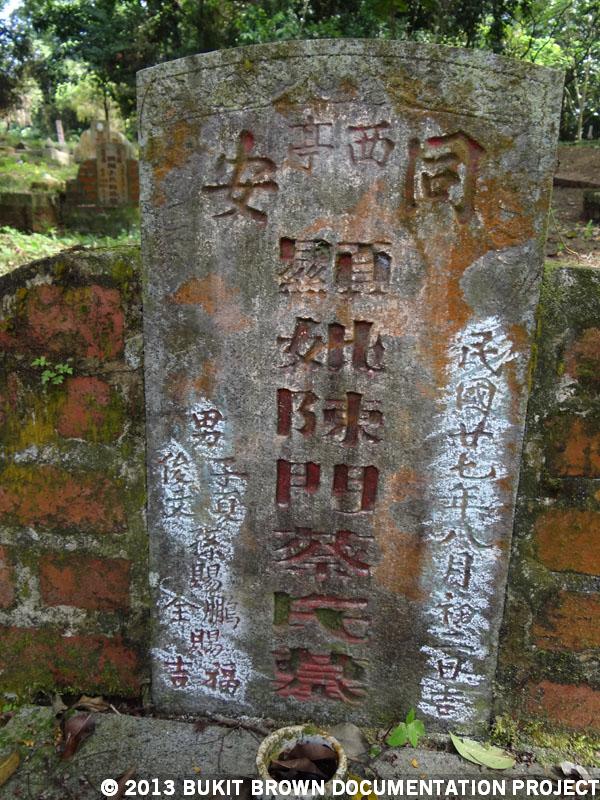 同安
西亭
民國廿七年八月初二日吉
顯妣陳門蔡氏墓
男 子
俊
孫賜鵬賜福
仝吉
© 2013 BUKIT BROWN DOCUMENTATION PROJECT